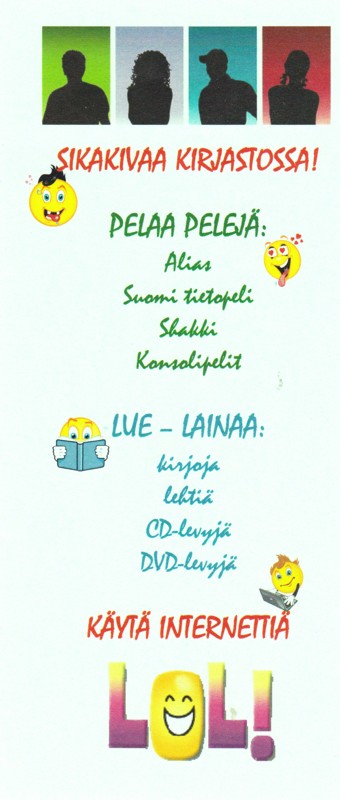 SIKAKIVAA KIRJASTOSSA!
PELAA PELEJÄ:
Alias
Suomi tietopeli
Shakki
Konsolipelit
LUE – LAINAA:
kirjoja
lehtiä
CD-levyjä
DVD-levyjä
KÄYTÄ INTERNETTIÄ
LOL!